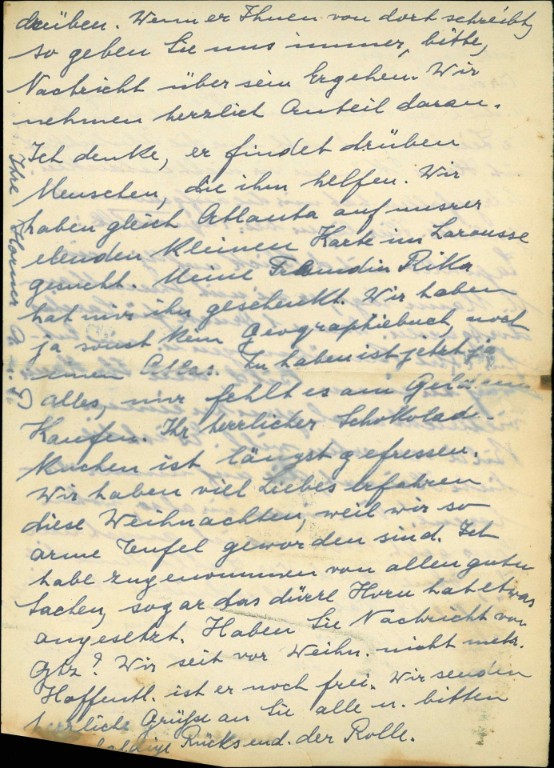 drüben. Wenn er Ihnen von dort schreibt,
so geben Sie uns immer, bitte,
Nachricht über sein Ergehen. Wir
nehmen herzlich Anteil daran.
Ich denke, er findet drüben
Menschen, die ihm helfen. Wir
haben gleich Atlanta auf unsrer
elenden kleinen Karte im Larousse
gesucht. Meine Freundin Rikka
hat mir ihn geschenkt. Wir haben
ja sonst kein Geographiebuch, noch
einen Atlas. Zu haben ist jetzt ja
alles, nur fehlt es am Geld zum
Kaufen. Ihr herrlicher Schokolade-
kuchen ist längst gefressen.
Wir haben viel Liebes erfahren
diese Weihnachten, weil wir so
arme Teufel geworden sind. Ich
habe zugenommen von allen guten
Sachen, sogar das dürre Horn hat etwas
angesetzt. Haben Sie Nachricht von
Gtz? Wir seit vor Weihn. nicht mehr.
Hoffentl. ist er noch frei. Wir senden
herzliche Grüße an Sie alle u. bitten
baldige Rücksend. der Rolle.
Ihre